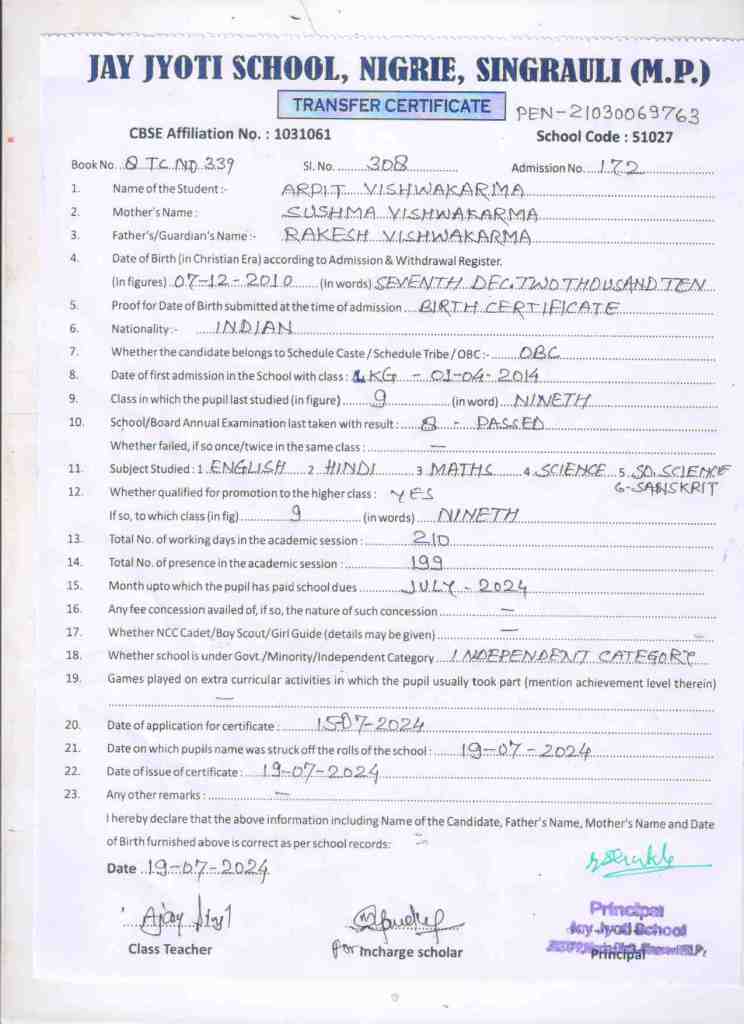 JAY JYOTI SCHOOL, NIGRIE, SINGRAULI (M.P.)
TRANSFER CERTIFICATE PEN-21030069763
CBSE Affiliation No. : 1031061 School Code : 51027
Book No. 8 TC NO 339 Sl. No. 308 Admission No. 172
1. Name of the Student :- ARPIT VISHWAKARMA
2. Mother's Name : SUSHMA VISHWAKARMA
3. Father's/Guardian's Name :- RAKESH VISHWAKARMA
4. Date of Birth (in Christian Era) according to Admission & Withdrawal Register.
(in figures) 07-12-2010 (In words) SEVENTH DEC. TWO THOUSAND TEN
5. Proof for Date of Birth submitted at the time of admission BIRTH CERTIFICATE
6. Nationality :- INDIAN
7. Whether the candidate belongs to Schedule Caste / Schedule Tribe / OBC :- OBC
8. Date of first admission in the School with class : LKG - 01-04-2014
9. Class in which the pupil last studied (in figure) 9 (in word) NINETH
10. School/Board Annual Examination last taken with result : 8 - PASSED
Whether failed, if so once/twice in the same class : —
11. Subject Studied : 1 ENGLISH 2 HINDI 3 MATHS 4 SCIENCE 5 SO. SCIENCE
6-SANSKRIT
12. Whether qualified for promotion to the higher class : YES
If so, to which class (in fig) 9 (in words) NINETH
13. Total No. of working days in the academic session : 210
14. Total No. of presence in the academic session : 199
15. Month upto which the pupil has paid school dues JULY - 2024
16. Any fee concession availed of, if so, the nature of such concession —
17. Whether NCC Cadet/Boy Scout/Girl Guide (details may be given) —
18. Whether school is under Govt./Minority/Independent Category INDEPENDENT CATEGORY
19. Games played on extra curricular activities in which the pupil usually took part (mention achievement level therein)
—
20. Date of application for certificate : 15-07-2024
21. Date on which pupils name was struck off the rolls of the school : 19-07-2024
22. Date of issue of certificate : 19-07-2024
23. Any other remarks : —
I hereby declare that the above information including Name of the Candidate, Father's Name, Mother's Name and Date
of Birth furnished above is correct as per school records:
Date 19-07-2024
Ajay
Principal
Jay Jyoti School
Class Teacher for Incharge scholar Principal